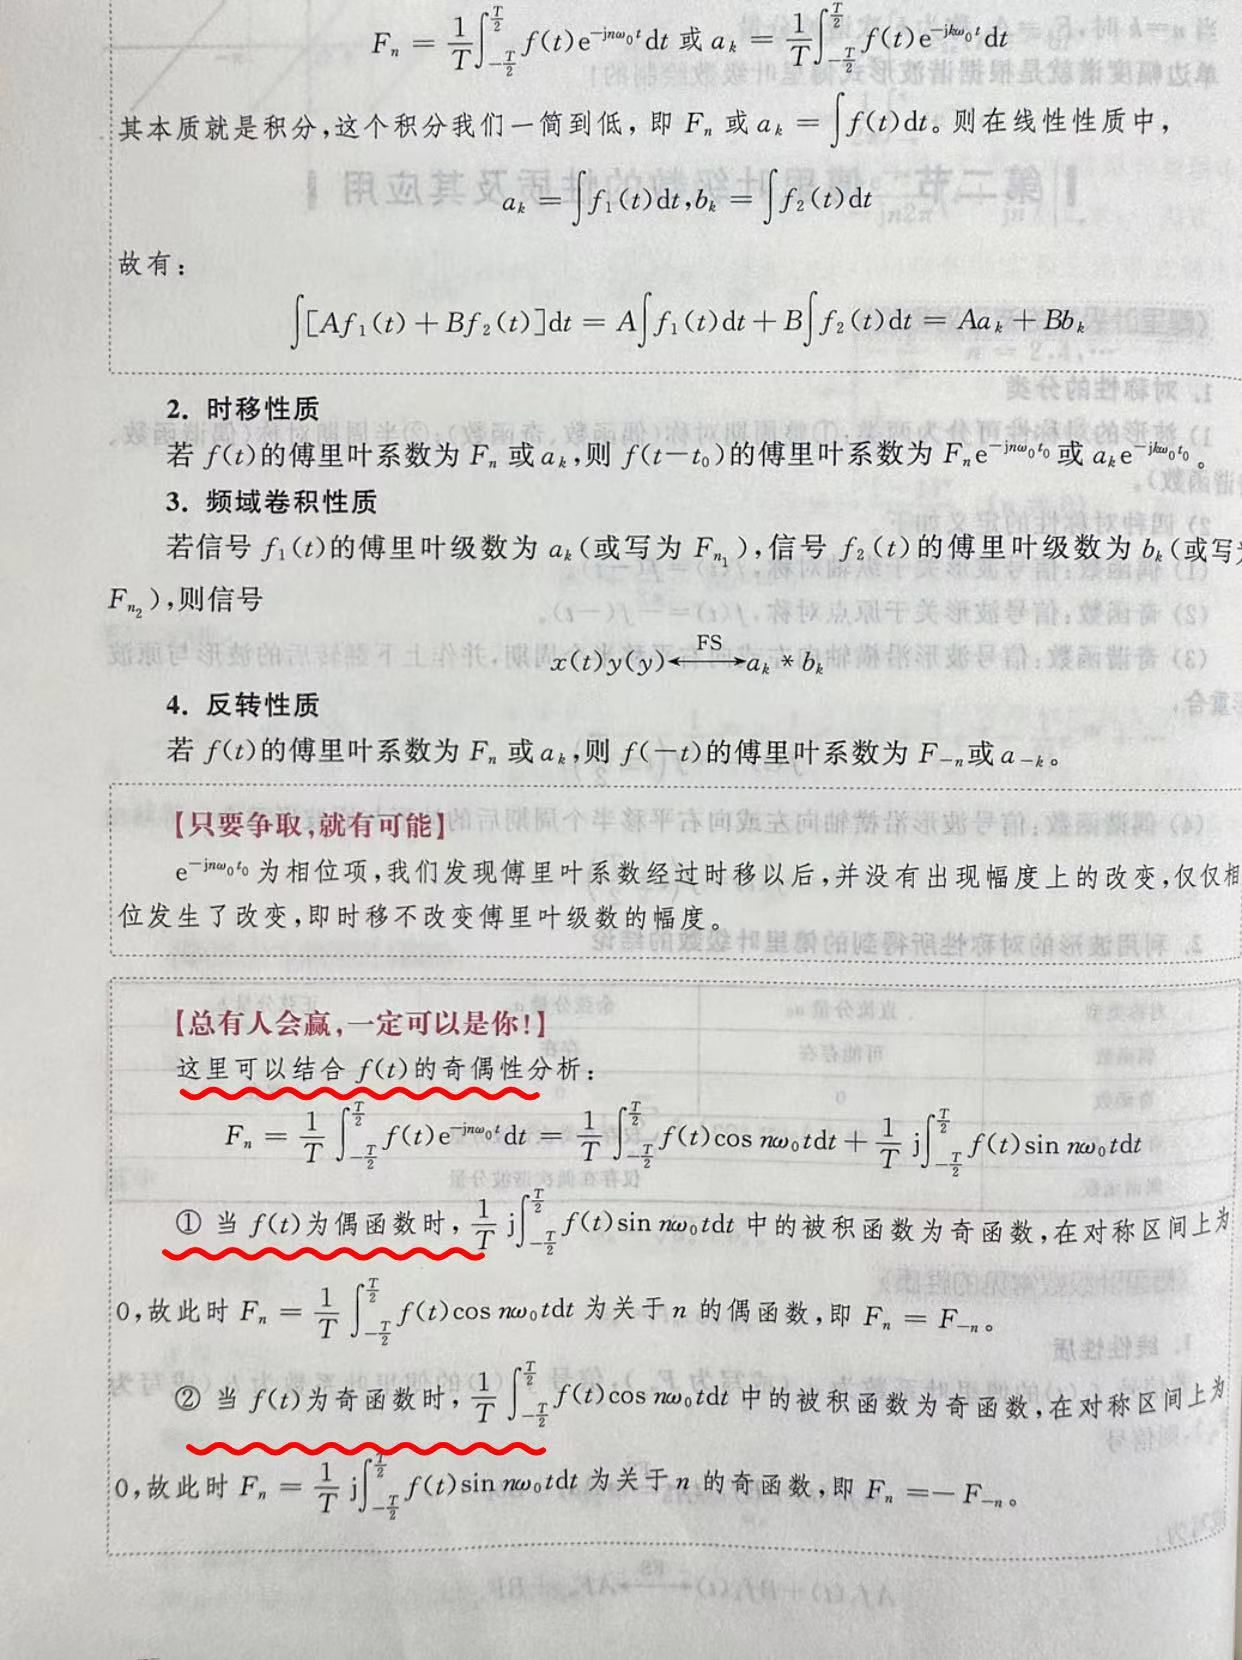 Fₙ = 1/T ∫_{-T/2}^{T/2} f(t)e^{-jnω₀t}dt 或 aₖ = 1/T ∫_{-T/2}^{T/2} f(t)e^{-jkω₀t}dt
其本质就是积分,这个积分我们一简到低,即 Fₙ 或 aₖ = ∫f(t)dt。则在线性性质中,
aₖ = ∫f₁(t)dt,bₖ = ∫f₂(t)dt
故有:
∫[Af₁(t)+Bf₂(t)]dt = A∫f₁(t)dt+B∫f₂(t)dt = Aaₖ+Bbₖ
2. 时移性质
若 f(t)的傅里叶系数为 Fₙ 或 aₖ,则 f(t-t₀)的傅里叶系数为 Fₙe^{-jnω₀t₀} 或 aₖe^{-jkω₀t₀}。
3. 频域卷积性质
若信号 f₁(t)的傅里叶级数为 aₖ(或写为 F_{n₁}),信号 f₂(t)的傅里叶级数为 bₖ(或写为
F_{n₂}),则信号
x(t)y(y)⟷^{FS} aₖ * bₖ
4. 反转性质
若 f(t)的傅里叶系数为 Fₙ 或 aₖ,则 f(-t)的傅里叶系数为 F₋ₙ或 a₋ₖ。
【只要争取,就有可能】
e^{-jnω₀t₀} 为相位项,我们发现傅里叶系数经过时移以后,并没有出现幅度上的改变,仅仅相
位发生了改变,即时移不改变傅里叶级数的幅度。
【总有人会赢,一定可以是你!】
这里可以结合 f(t)的奇偶性分析:
Fₙ = 1/T ∫_{-T/2}^{T/2} f(t)e^{-jnω₀t}dt = 1/T ∫_{-T/2}^{T/2} f(t)cos nω₀tdt + 1/T j∫_{-T/2}^{T/2} f(t)sin nω₀tdt
① 当 f(t)为偶函数时,1/T j∫_{-T/2}^{T/2} f(t)sin nω₀tdt 中的被积函数为奇函数,在对称区间上为
0,故此时 Fₙ = 1/T ∫_{-T/2}^{T/2} f(t)cos nω₀tdt 为关于 n 的偶函数,即 Fₙ = F₋ₙ。
② 当 f(t)为奇函数时,1/T ∫_{-T/2}^{T/2} f(t)cos nω₀tdt 中的被积函数为奇函数,在对称区间上为
0,故此时 Fₙ = 1/T j∫_{-T/2}^{T/2} f(t)sin nω₀tdt 为关于 n 的奇函数,即 Fₙ =- F₋ₙ。